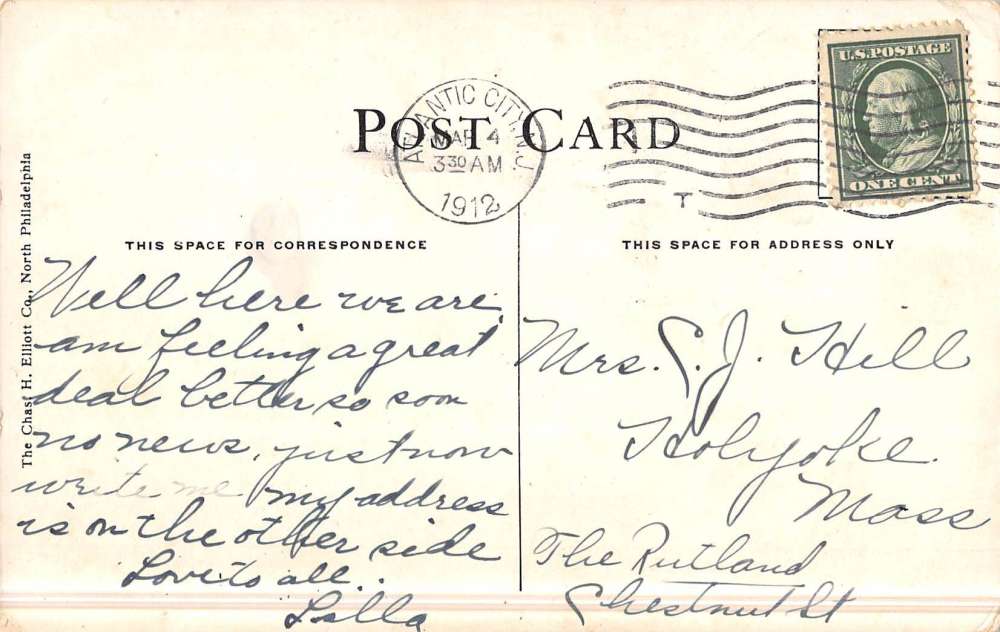 U.S. POSTAGE
ONE CENT
POST CARD
ATLANTIC CITY, N.J.
MAR 4
3 30 AM
1912
T
THIS SPACE FOR CORRESPONDENCE
THIS SPACE FOR ADDRESS ONLY
The Chas. H. Elliott Co., North Philadelphia
Well here we are,
am feeling a great
deal better so soon
no news, just now
write me my address
is on the other side
Love to all.
Lilla
Mrs. C. J. Hill
Holyoke.
Mass
The Rutland
Chestnut St